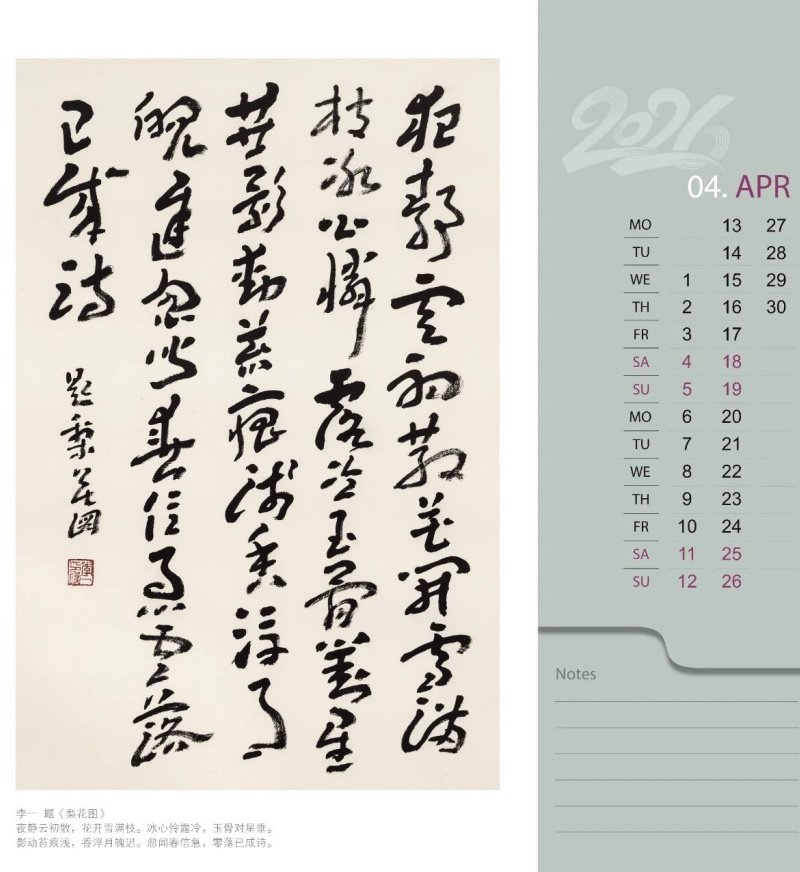 夜静云初散花開雪滿
枝冰心憐露冷玉骨對星
垂影動苔痕淺香浮月
魄遲忽聞春信急零落
已成詩
題梨花圖
李一 题《梨花图》
夜静云初散，花开雪满枝。冰心怜露冷，玉骨对星垂。
影动苔痕浅，香浮月魄迟。忽闻春信急，零落已成诗。
2026
04. APR
MO 13 27
TU 14 28
WE 1 15 29
TH 2 16 30
FR 3 17
SA 4 18
SU 5 19
MO 6 20
TU 7 21
WE 8 22
TH 9 23
FR 10 24
SA 11 25
SU 12 26
Notes